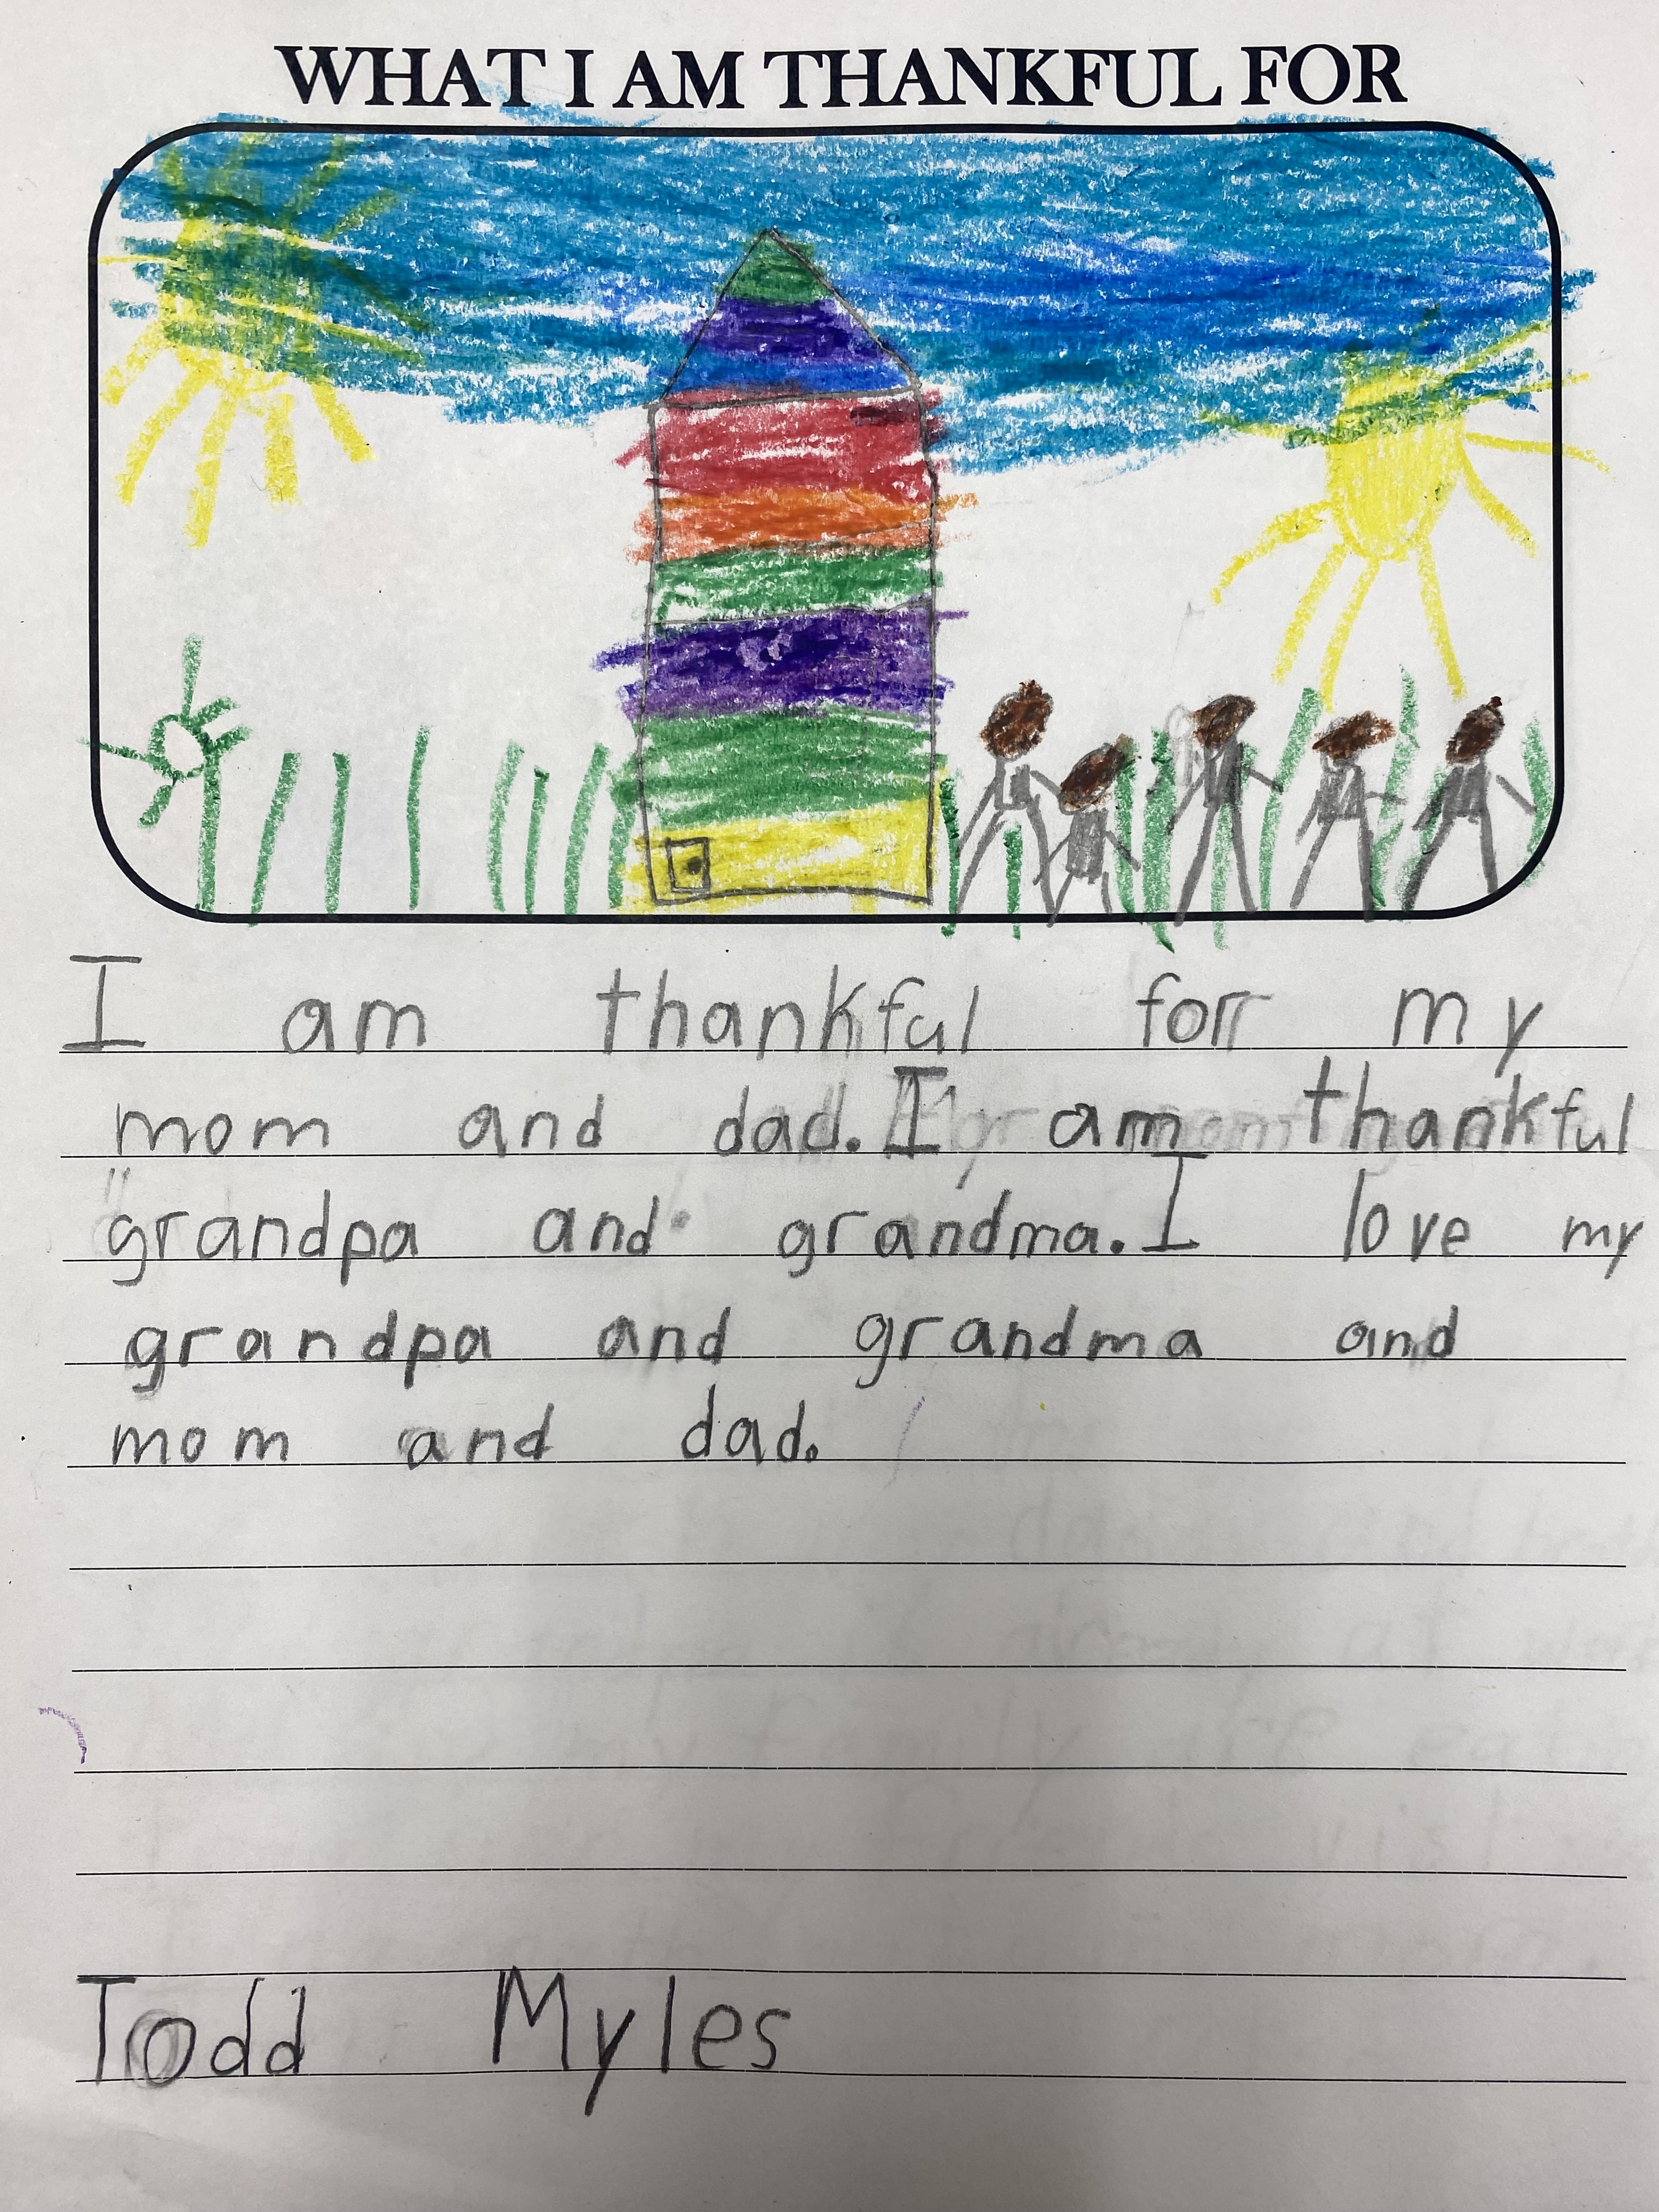 WHAT I AM THANKFUL FOR
I am thankful for my
mom and dad. I am thankful
grandpa and grandma. I love my
grandpa and grandma and
mom and dad.
Todd Myles